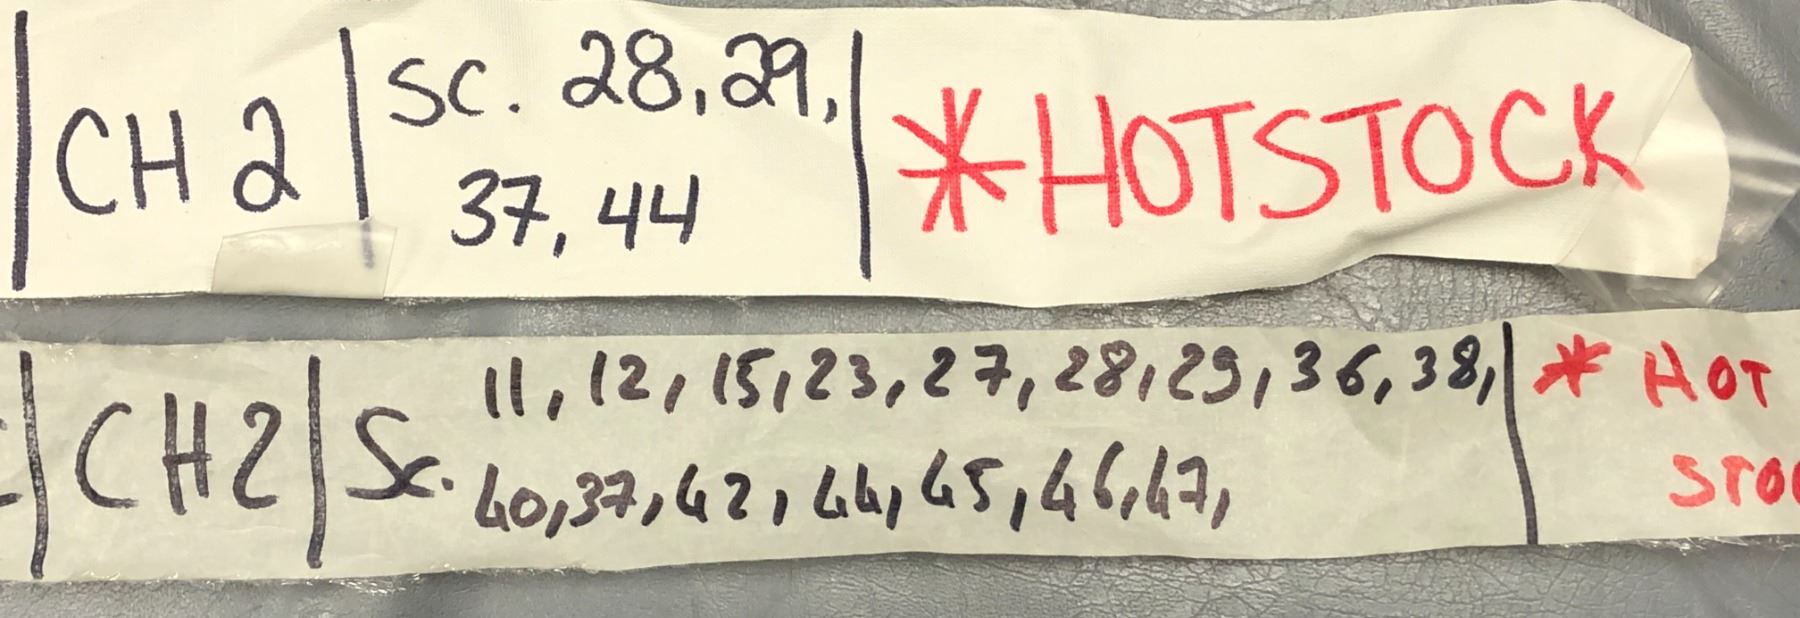 CH 2
SC. 28, 29,
37, 44
*HOTSTOCK
CH2
Sc. 11, 12, 15, 23, 27, 28, 29, 36, 38,
40, 37, 42, 44, 45, 46, 47,
* HOT
STOC